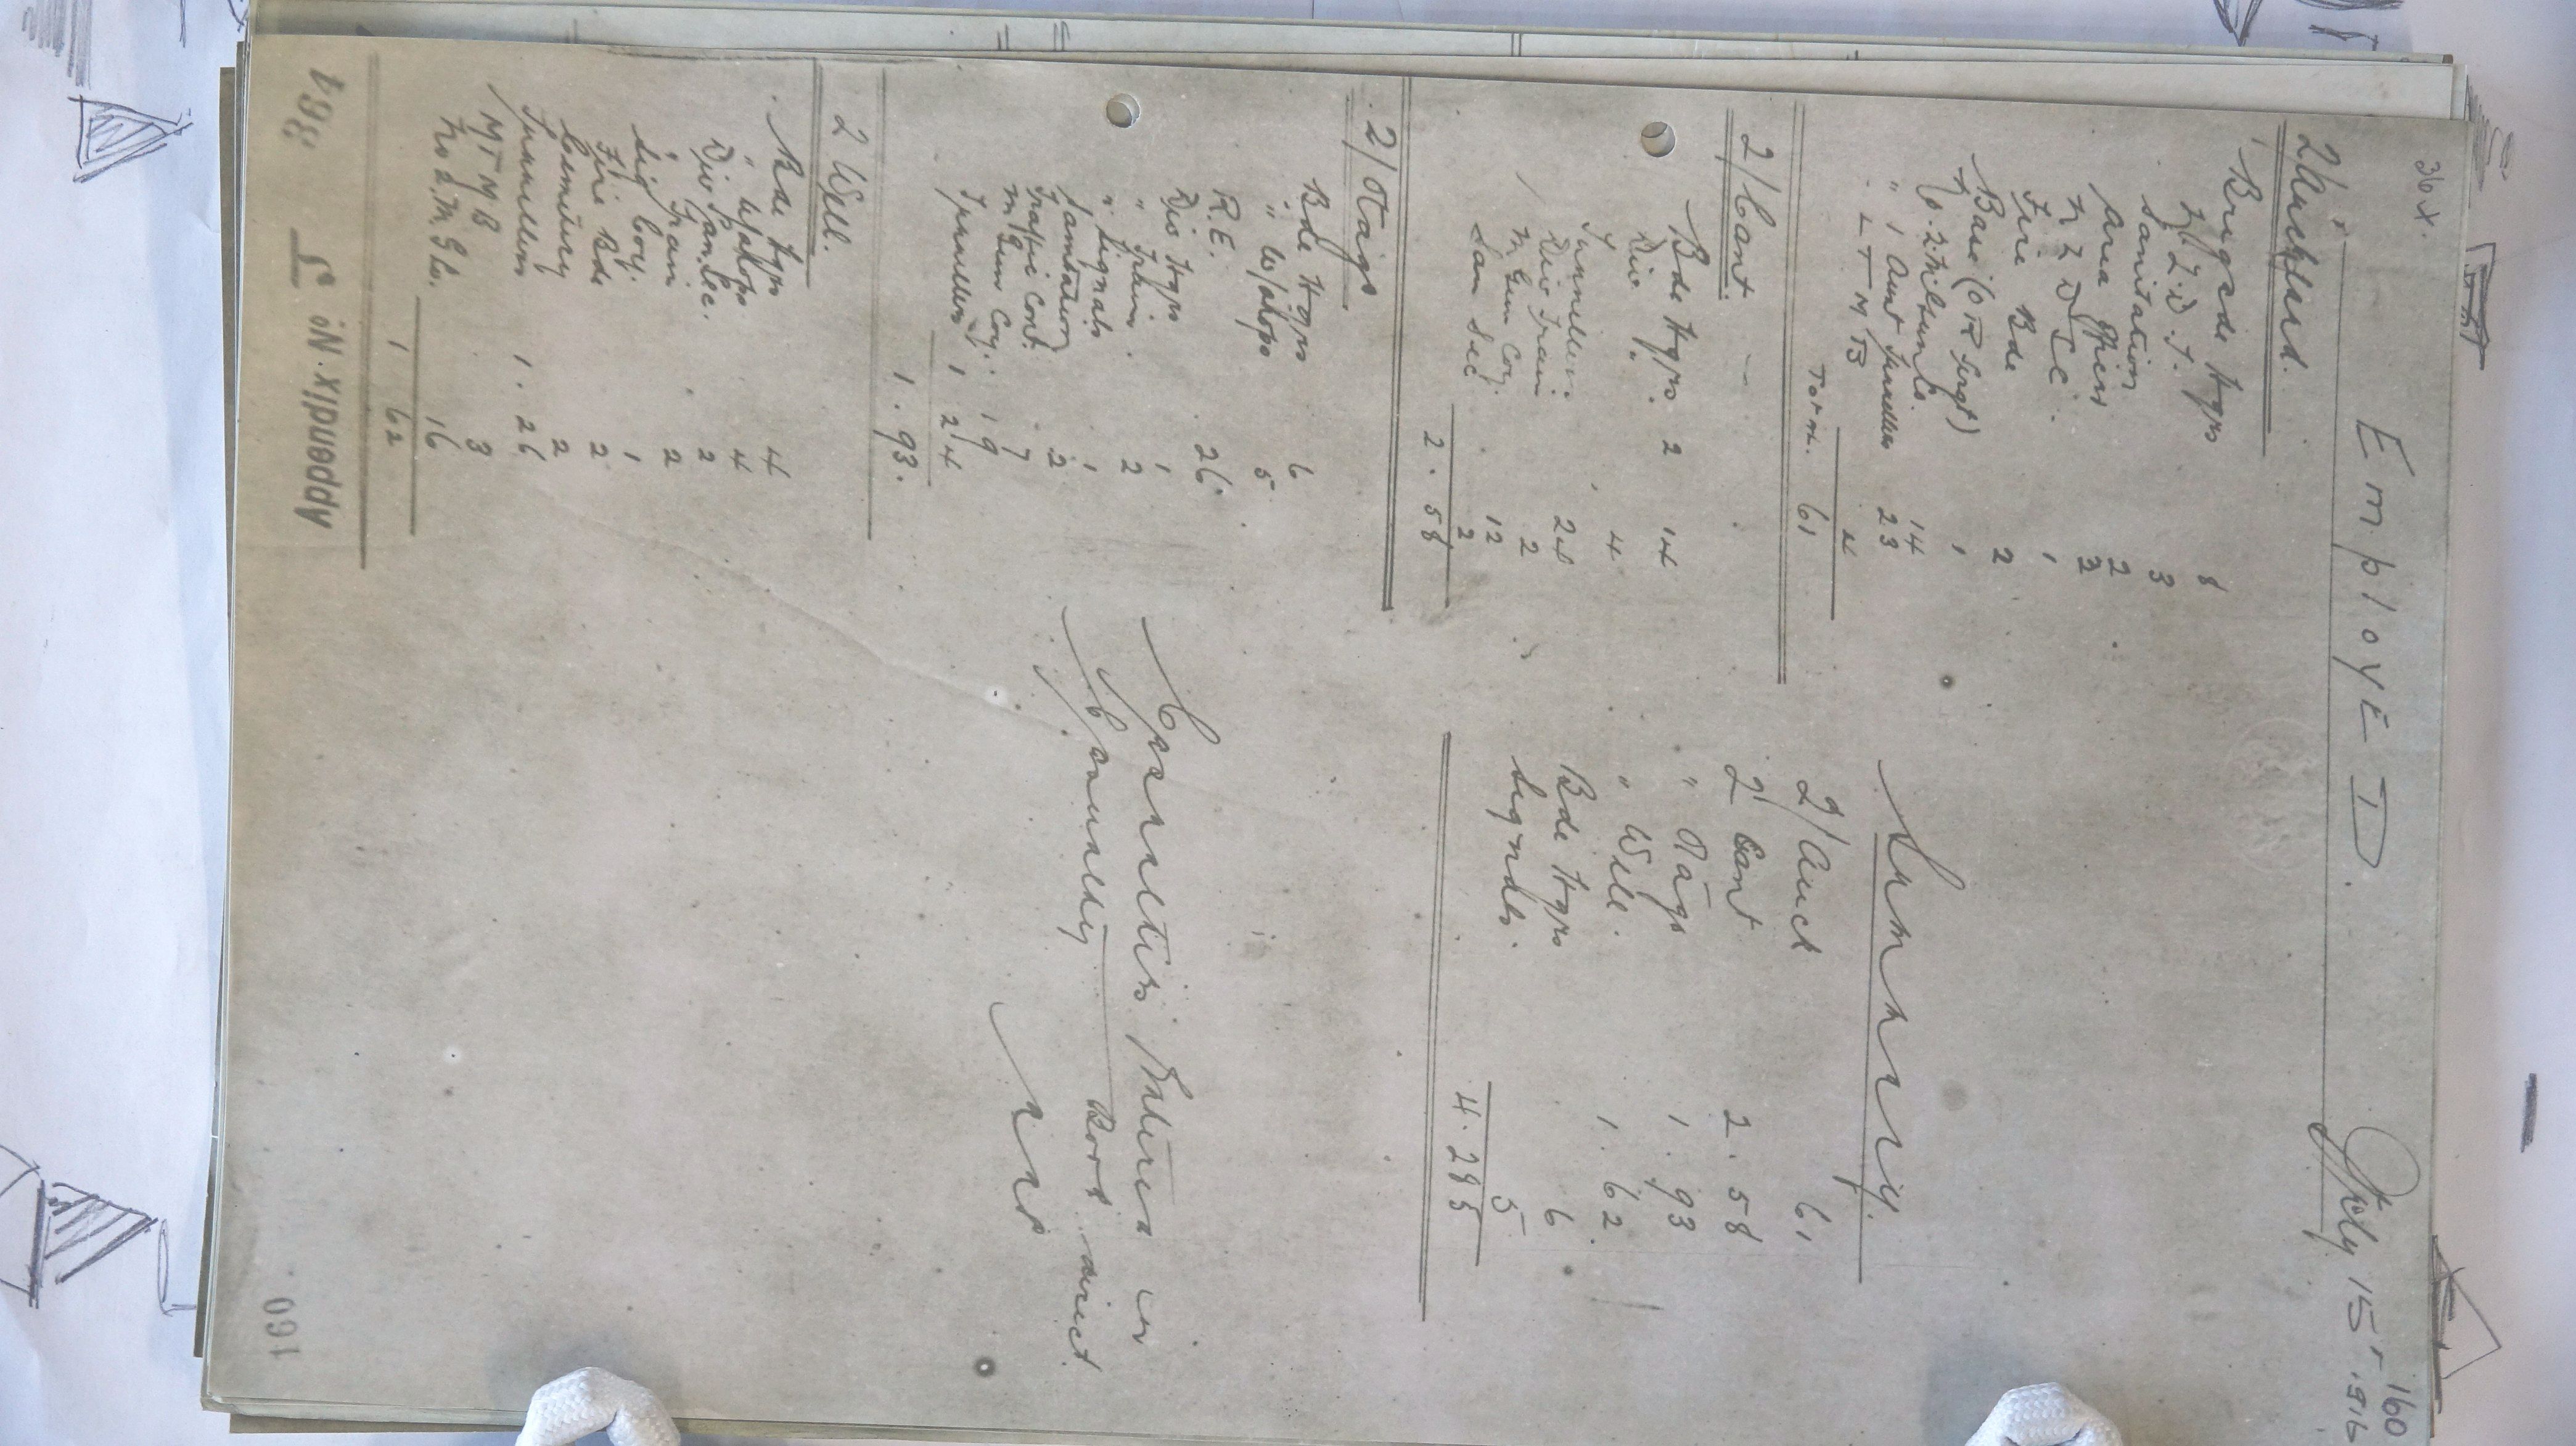 36X.
160
EmployED. July 15th 1916
2/Auckland.
Brigade Hqrs 8
N.Z.D. Hqrs 3
Sanitation 2
Area Officers 2
N Z D I C. 1
Fire Bde 2
Base (O R Sergt) 1
14
" 1 Aunt Tunellers 23
" L T M B 4
Total. 61
2/Cant.
Bde Hqrs. 2 14
Div " 4
Tunellers. 24
Div Train 2
M Gun Coy. 12
San Sec. 2
2. 58
2/Otago
Bde Hqrs 6
" W/shops 5
R.E. 26.
Div Hqrs 1
" Train. 2
" Signals 1
Sanitation 2
Traffic Cont. 7
M Gun Coy. 19
Tunellers 1 24
1. 93.
2 Well.
Bde Hqrs 4
" W/shops 4
Div San. Sec. 2
" Train 2
Sig Coy. 1
Fire Bde 2
Cemetery 2
Tunellers 1. 26
M T M B 3
No 2. M. G Co. 16
1 62
Summary.
2/Auck 61
2 Cant 2. 58
" Otago 1. 93
" Well. 1. 62.
Bde Hqrs 6
Signals. 5
4. 285
Casualties Entered in
Casualty Book direct.
Appendix. No. J
160.